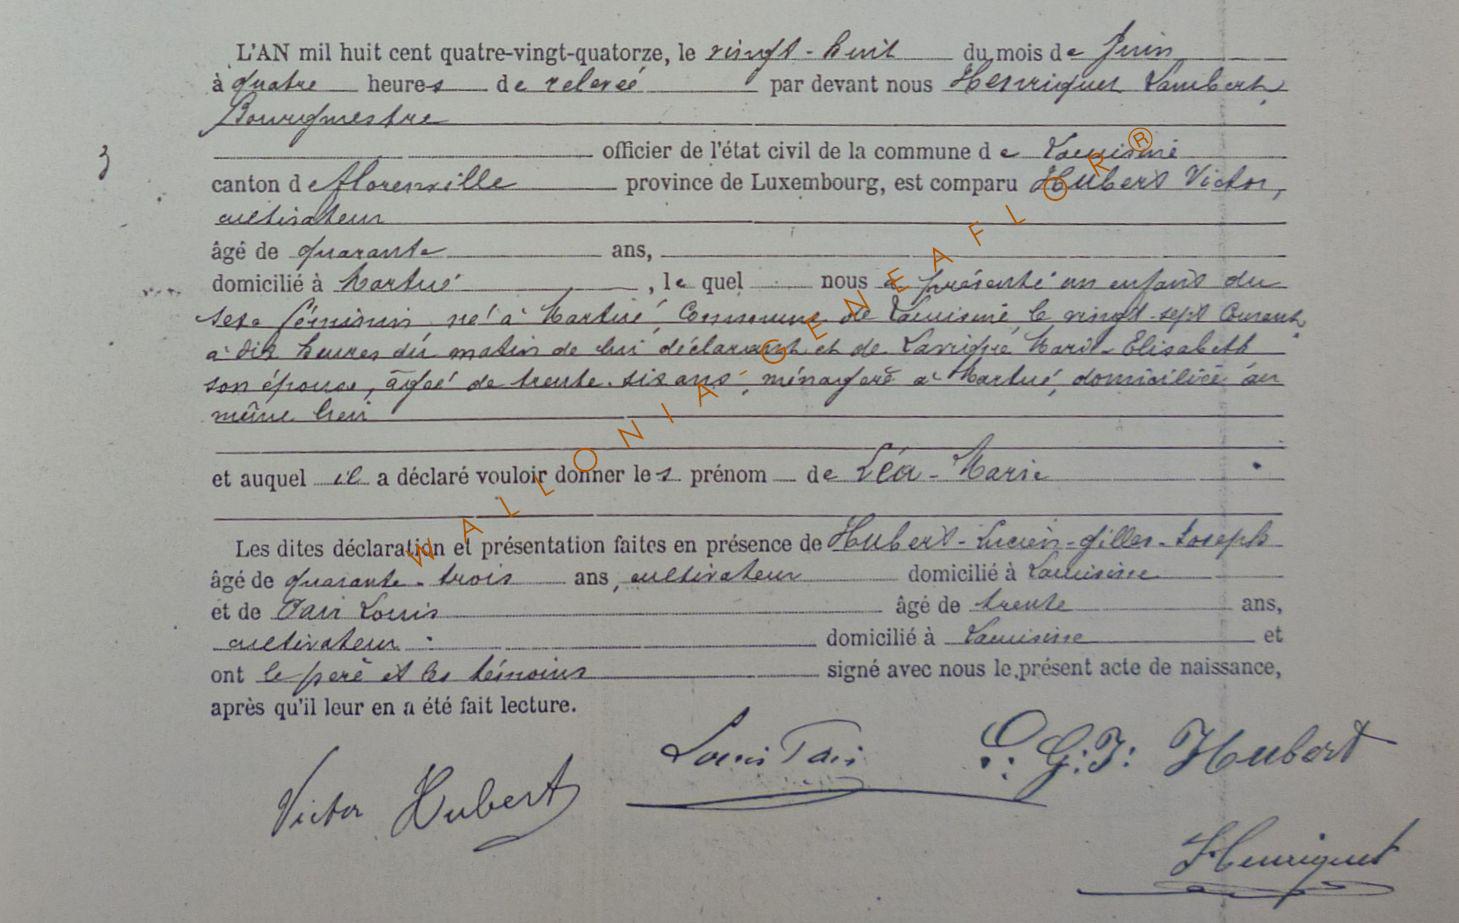 L'AN mil huit cent quatre-vingt-quatorze, le vingt-huit du mois de Juin
à quatre heures de relevée par devant nous Henriquet Lambert
Bourgmestre
3 officier de l'état civil de la commune de Lacuisine
canton de florenville province de Luxembourg, est comparu Hubert Victor,
cultivateur
âgé de quarante ans,
domicilié à Martué, lequel nous a présenté un enfant du
sexe féminin, né à Martué, Commune de Lacuisine le vingt-sept Courant,
à dix heures du matin de lui déclarant et de Marie-Elisabeth
son épouse, âgée de trente-six ans, ménagère à Martué, domiciliée au
même lieu
et auquel il a déclaré vouloir donner les prénom de Léa-Marie
Les dites déclaration et présentation faites en présence de Hubert-Lucien-Gilles-Joseph
âgé de quarante-trois ans, cultivateur domicilié à Lacuisine
et de Louis âgé de trente ans,
cultivateur domicilié à Lacuisine et
ont le père et les témoins signé avec nous le présent acte de naissance,
après qu'il leur en a été fait lecture.
Victor Hubert
Louis
L: G: J: Hubert
Henriquet
WALLONIA-GENEAFLOR®